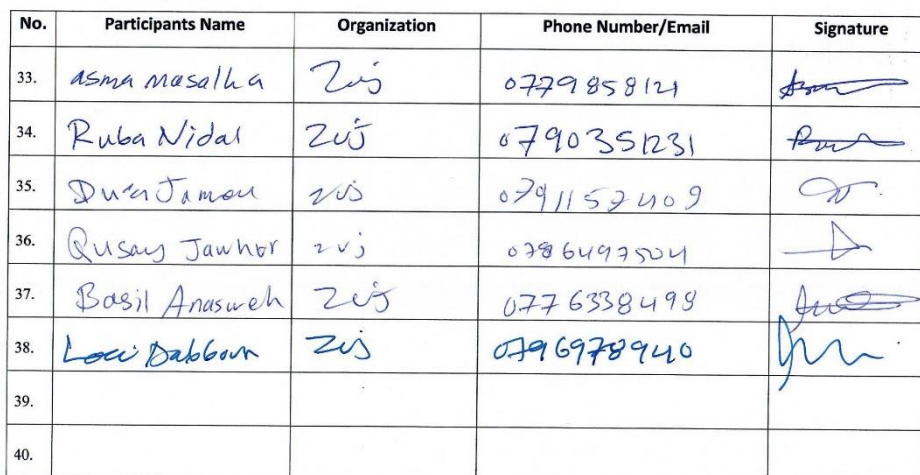 No. Participants Name Organization Phone Number/Email Signature
33. asma masalha Zuj 0779858121
34. Ruba Nidal Zuj 0790351231
35. Dua Jamou zuj 0791157409
36. Qusay Jawhor zuj 0786497504
37. Basil Anasweh Zuj 0776338498
38. Loai Dabboun Zuj 0796978940
39.
40.